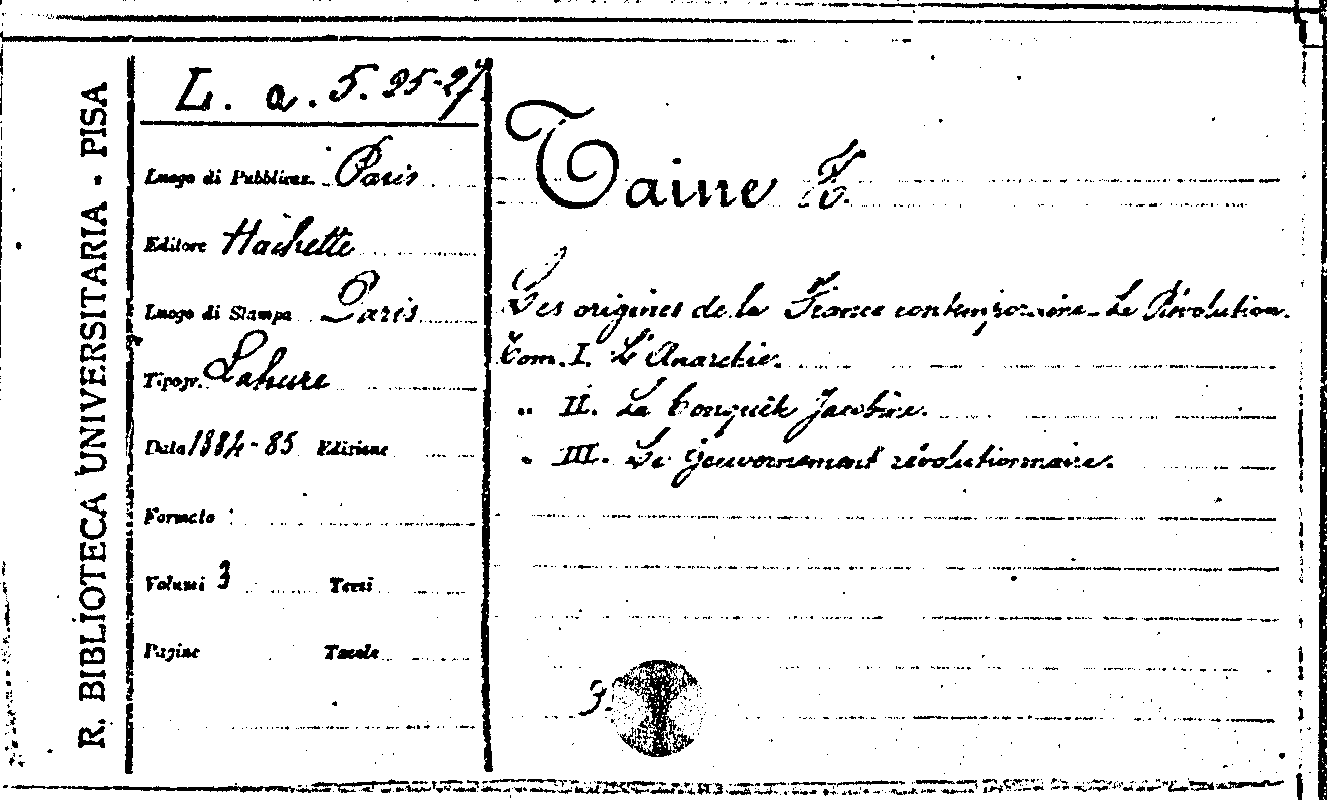 R. BIBLIOTECA UNIVERSITARIA - PISA
L. a. 5. 25-27
Luogo di Pubblicaz. Paris
Editore Hachette
Luogo di Stampa Paris
Tipogr. Lahure
Data 1884-85 Edizione
Formato
Volumi 3 Tomi
Pagine Tavole
Taine H.
Les origines de la France contemporaine - La Révolution.
Tom. I. L'Anarchie.
„ II. La Conquête Jacobine.
„ III. Le Gouvernement révolutionnaire.